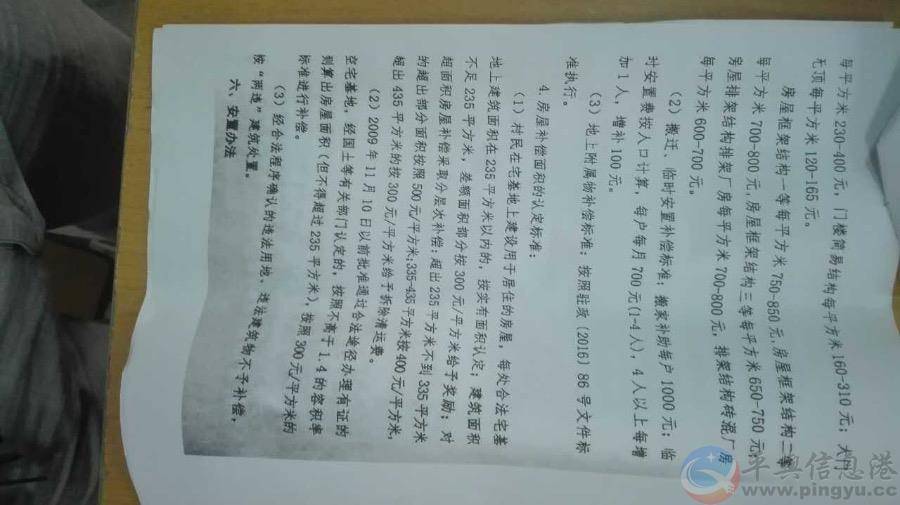 每平方米 230-400 元，门楼简易结构每平方米 160-310 元；大门
无顶每平方米 120-165 元。
房屋框架结构一等每平方米 750-850 元，房屋框架结构二等
每平方米 700-800 元，房屋框架结构三等每平方米 650-750 元；
房屋排架结构排架厂房每平方米 700-800 元，排架结构砖混厂房
每平方米 600-700 元。
（2）搬迁、临时安置补偿标准：搬家补助每户 1000 元；临
时安置费按人口计算，每户每月 700 元(1-4 人)，4 人以上每增
加 1 人，增补 100 元。
（3）地上附属物补偿标准：按照驻政〔2016〕86 号文件标
准执行。
4. 房屋补偿面积的认定标准：
（1）村民在宅基地上建设用于居住的房屋，每处合法宅基
地上建筑面积在 235 平方米以内的，按实有面积认定；建筑面积
不足 235 平方米，差额面积部分按 300 元/平方米给予奖励；对
超面积房屋补偿采取分层次补偿：超出 235 平方米不到 335 平方米
的超出部分面积按照 500 元/平方米;335-435 平方米按 400 元/平方米，
超出 435 平方米的按 300 元/平方米给予拆除清运费。
（2）2009 年 11 月 10 日以前批准通过合法途径办理有证的
空宅基地，经国土等有关部门认定的，按照不高于 1.4 的容积率
测算出房屋面积（但不得超过 235 平方米），按照 300 元/平方米的
标准进行补偿。
（3）经合法程序确认的违法用地、违法建筑物不予补偿，
按“两违”建筑处置。
六、安置办法
平舆信息港
www.pingyu.cc